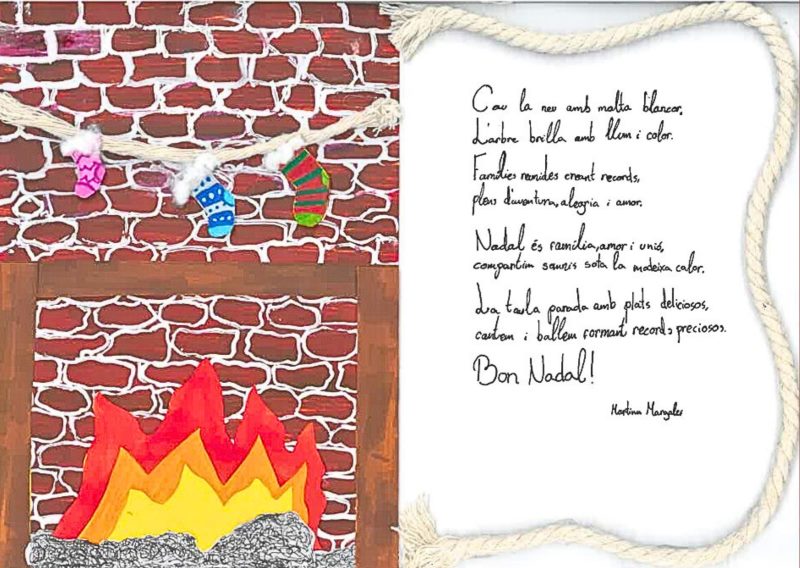 Cau la neu amb molta blancor,
L'arbre brilla amb llum i color.
Famílies reunides creant records,
plens d'aventura, alegria i amor.
Nadal és família, amor i unió,
compartim somris sota la mateixa calor.
La taula parada amb plats deliciosos,
cantem i ballem formant records preciosos.
Bon Nadal!
Martina Margales